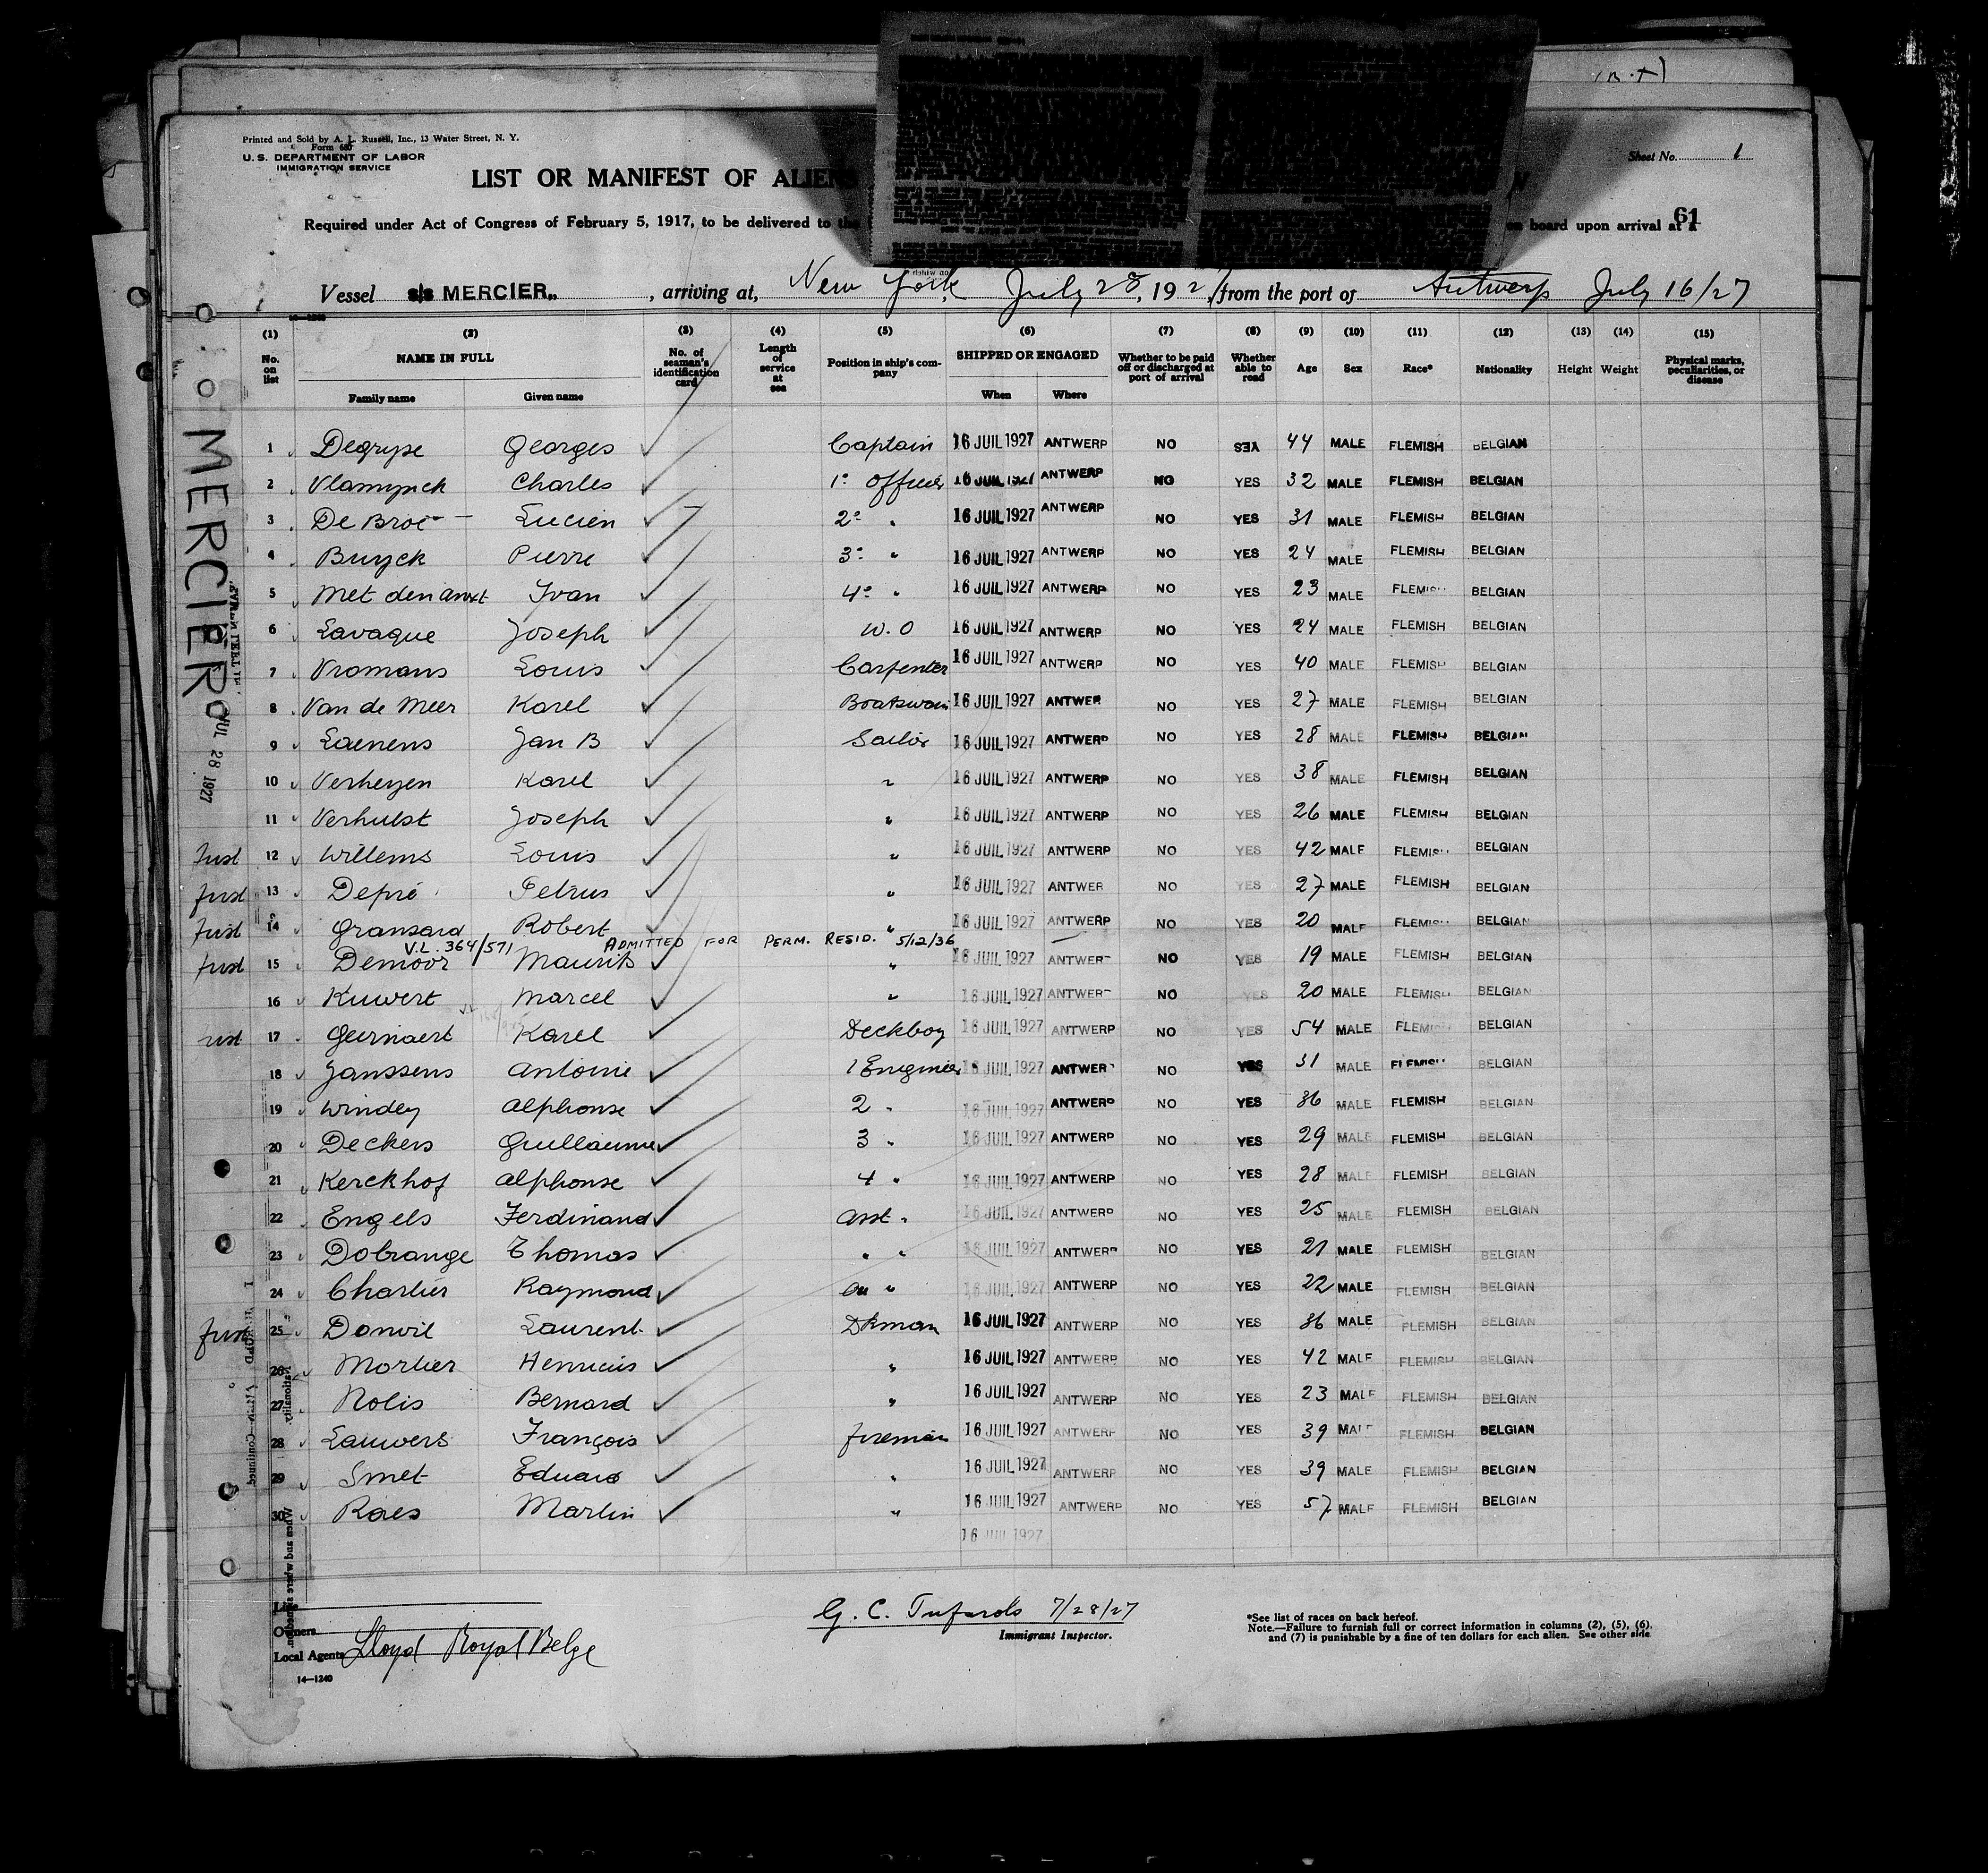 Printed and Sold by A. L. Russell, Inc., 13 Water Street, N. Y.
Form 680
U. S. DEPARTMENT OF LABOR
IMMIGRATION SERVICE
Sheet No. 1
LIST OR MANIFEST OF ALIENS
61
Required under Act of Congress of February 5, 1917, to be delivered to the board upon arrival at a
Vessel s/s MERCIER, arriving at, New York July 28, 1927, from the port of Antwerp July 16/27
(1) (2) (3) (4) (5) (6) (7) (8) (9) (10) (11) (12) (13) (14) (15)
No. on list NAME IN FULL No. of seaman's identification card Length of service at sea Position in ship's company SHIPPED OR ENGAGED Whether to be paid off or discharged at port of arrival Whether able to read Age Sex Race* Nationality Height Weight Physical marks, peculiarities, or disease
Family name Given name When Where
1 Degryse Georges Captain 16 JUIL 1927 ANTWERP NO YES 44 MALE FLEMISH BELGIAN
2 Vlamynck Charles 1° Officer 16 JUIL 1927 ANTWERP NO YES 32 MALE FLEMISH BELGIAN
3 De Broe Lucien 2° " 16 JUIL 1927 ANTWERP NO YES 31 MALE FLEMISH BELGIAN
4 Buyck Pierre 3° " 16 JUIL 1927 ANTWERP NO YES 24 MALE FLEMISH BELGIAN
5 Met den anxt Ivan 4° " 16 JUIL 1927 ANTWERP NO YES 23 MALE FLEMISH BELGIAN
6 Lavaque Joseph W. O 16 JUIL 1927 ANTWERP NO YES 24 MALE FLEMISH BELGIAN
7 Vromans Louis Carpenter 16 JUIL 1927 ANTWERP NO YES 40 MALE FLEMISH BELGIAN
8 Van de Meer Karel Boatswain 16 JUIL 1927 ANTWER NO YES 27 MALE FLEMISH BELGIAN
9 Laenens Jan B Sailor 16 JUIL 1927 ANTWERP NO YES 28 MALE FLEMISH BELGIAN
10 Verheyen Karel " 16 JUIL 1927 ANTWERP NO YES 38 MALE FLEMISH BELGIAN
11 Verhulst Joseph " 16 JUIL 1927 ANTWERP NO YES 26 MALE FLEMISH BELGIAN
12 Willems Louis " 16 JUIL 1927 ANTWERP NO YES 42 MALE FLEMISH BELGIAN
13 Depré Petrus " 16 JUIL 1927 ANTWER NO YES 27 MALE FLEMISH BELGIAN
14 Gransard Robert " 16 JUIL 1927 ANTWERP NO YES 20 MALE FLEMISH BELGIAN
V.L. 364/571 ADMITTED FOR PERM. RESID. 5/12/36
15 Demoor Maurits " 16 JUIL 1927 ANTWERP NO YES 19 MALE FLEMISH BELGIAN
16 Kuwert Marcel " 16 JUIL 1927 ANTWERP NO YES 20 MALE FLEMISH BELGIAN
17 Geernaert Karel Deckboy 16 JUIL 1927 ANTWERP NO YES 54 MALE FLEMISH BELGIAN
18 Janssens Antoine 1 Engineer 16 JUIL 1927 ANTWERP NO YES 31 MALE FLEMISH BELGIAN
19 Windey Alphonse 2 " 16 JUIL 1927 ANTWERP NO YES 36 MALE FLEMISH BELGIAN
20 Deckers Guillaume 3 " 16 JUIL 1927 ANTWERP NO YES 29 MALE FLEMISH BELGIAN
21 Kerckhof Alphonse 4 " 16 JUIL 1927 ANTWERP NO YES 28 MALE FLEMISH BELGIAN
22 Engels Ferdinand Asst " 16 JUIL 1927 ANTWERP NO YES 25 MALE FLEMISH BELGIAN
23 Dobrange Thomas " " 16 JUIL 1927 ANTWERP NO YES 21 MALE FLEMISH BELGIAN
24 Charlier Raymond " 16 JUIL 1927 ANTWERP NO YES 22 MALE FLEMISH BELGIAN
25 Donvil Laurent Dkman 16 JUIL 1927 ANTWERP NO YES 36 MALE FLEMISH BELGIAN
26 Mortier Henricus " 16 JUIL 1927 ANTWERP NO YES 42 MALE FLEMISH BELGIAN
27 Nolis Bernard " 16 JUIL 1927 ANTWERP NO YES 23 MALE FLEMISH BELGIAN
28 Lauwers François fireman 16 JUIL 1927 ANTWERP NO YES 39 MALE FLEMISH BELGIAN
29 Smet Eduard " 16 JUIL 1927 ANTWERP NO YES 39 MALE FLEMISH BELGIAN
30 Raes Martin " 16 JUIL 1927 ANTWERP NO YES 57 MALE FLEMISH BELGIAN
16 JUIL 1927
MERCIER
JUL 28 1927
Line
Owners
Local Agents Lloyd Royal Belge
14—1240
G. C. 7/28/27
Immigrant Inspector.
*See list of races on back hereof.
Note.—Failure to furnish full or correct information in columns (2), (5), (6), and (7) is punishable by a fine of ten dollars for each alien. See other side